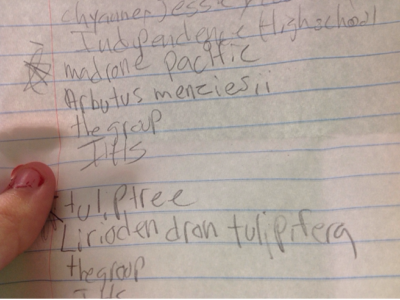 Independence Highschool
madrone pacific
Arbutus menziesii
thegroup
tuliptree
Lirioden dron tulipifera
thegroup